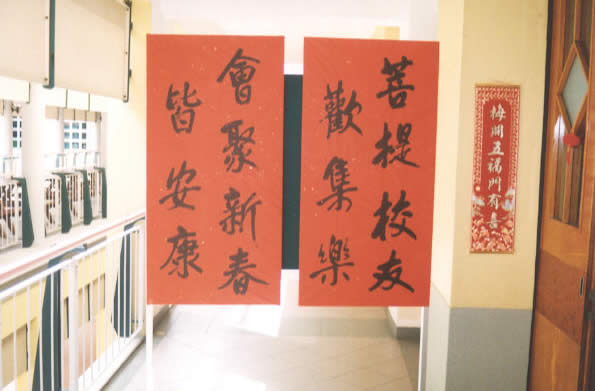 菩提校友
歡集樂
會聚新春
皆安康
梅開五福門有喜